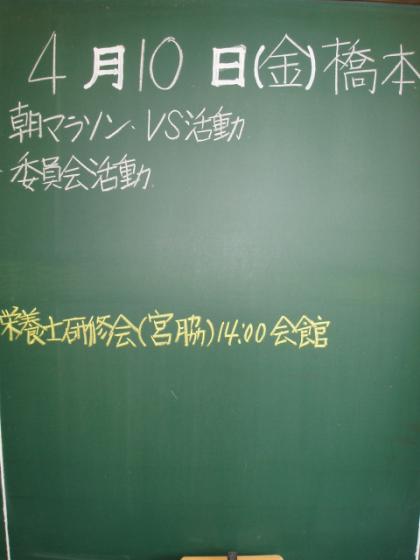 4月10日(金)橋本
朝マラソン、VS活動
委員会活動
栄養士研修会(宮脇)14:00会館